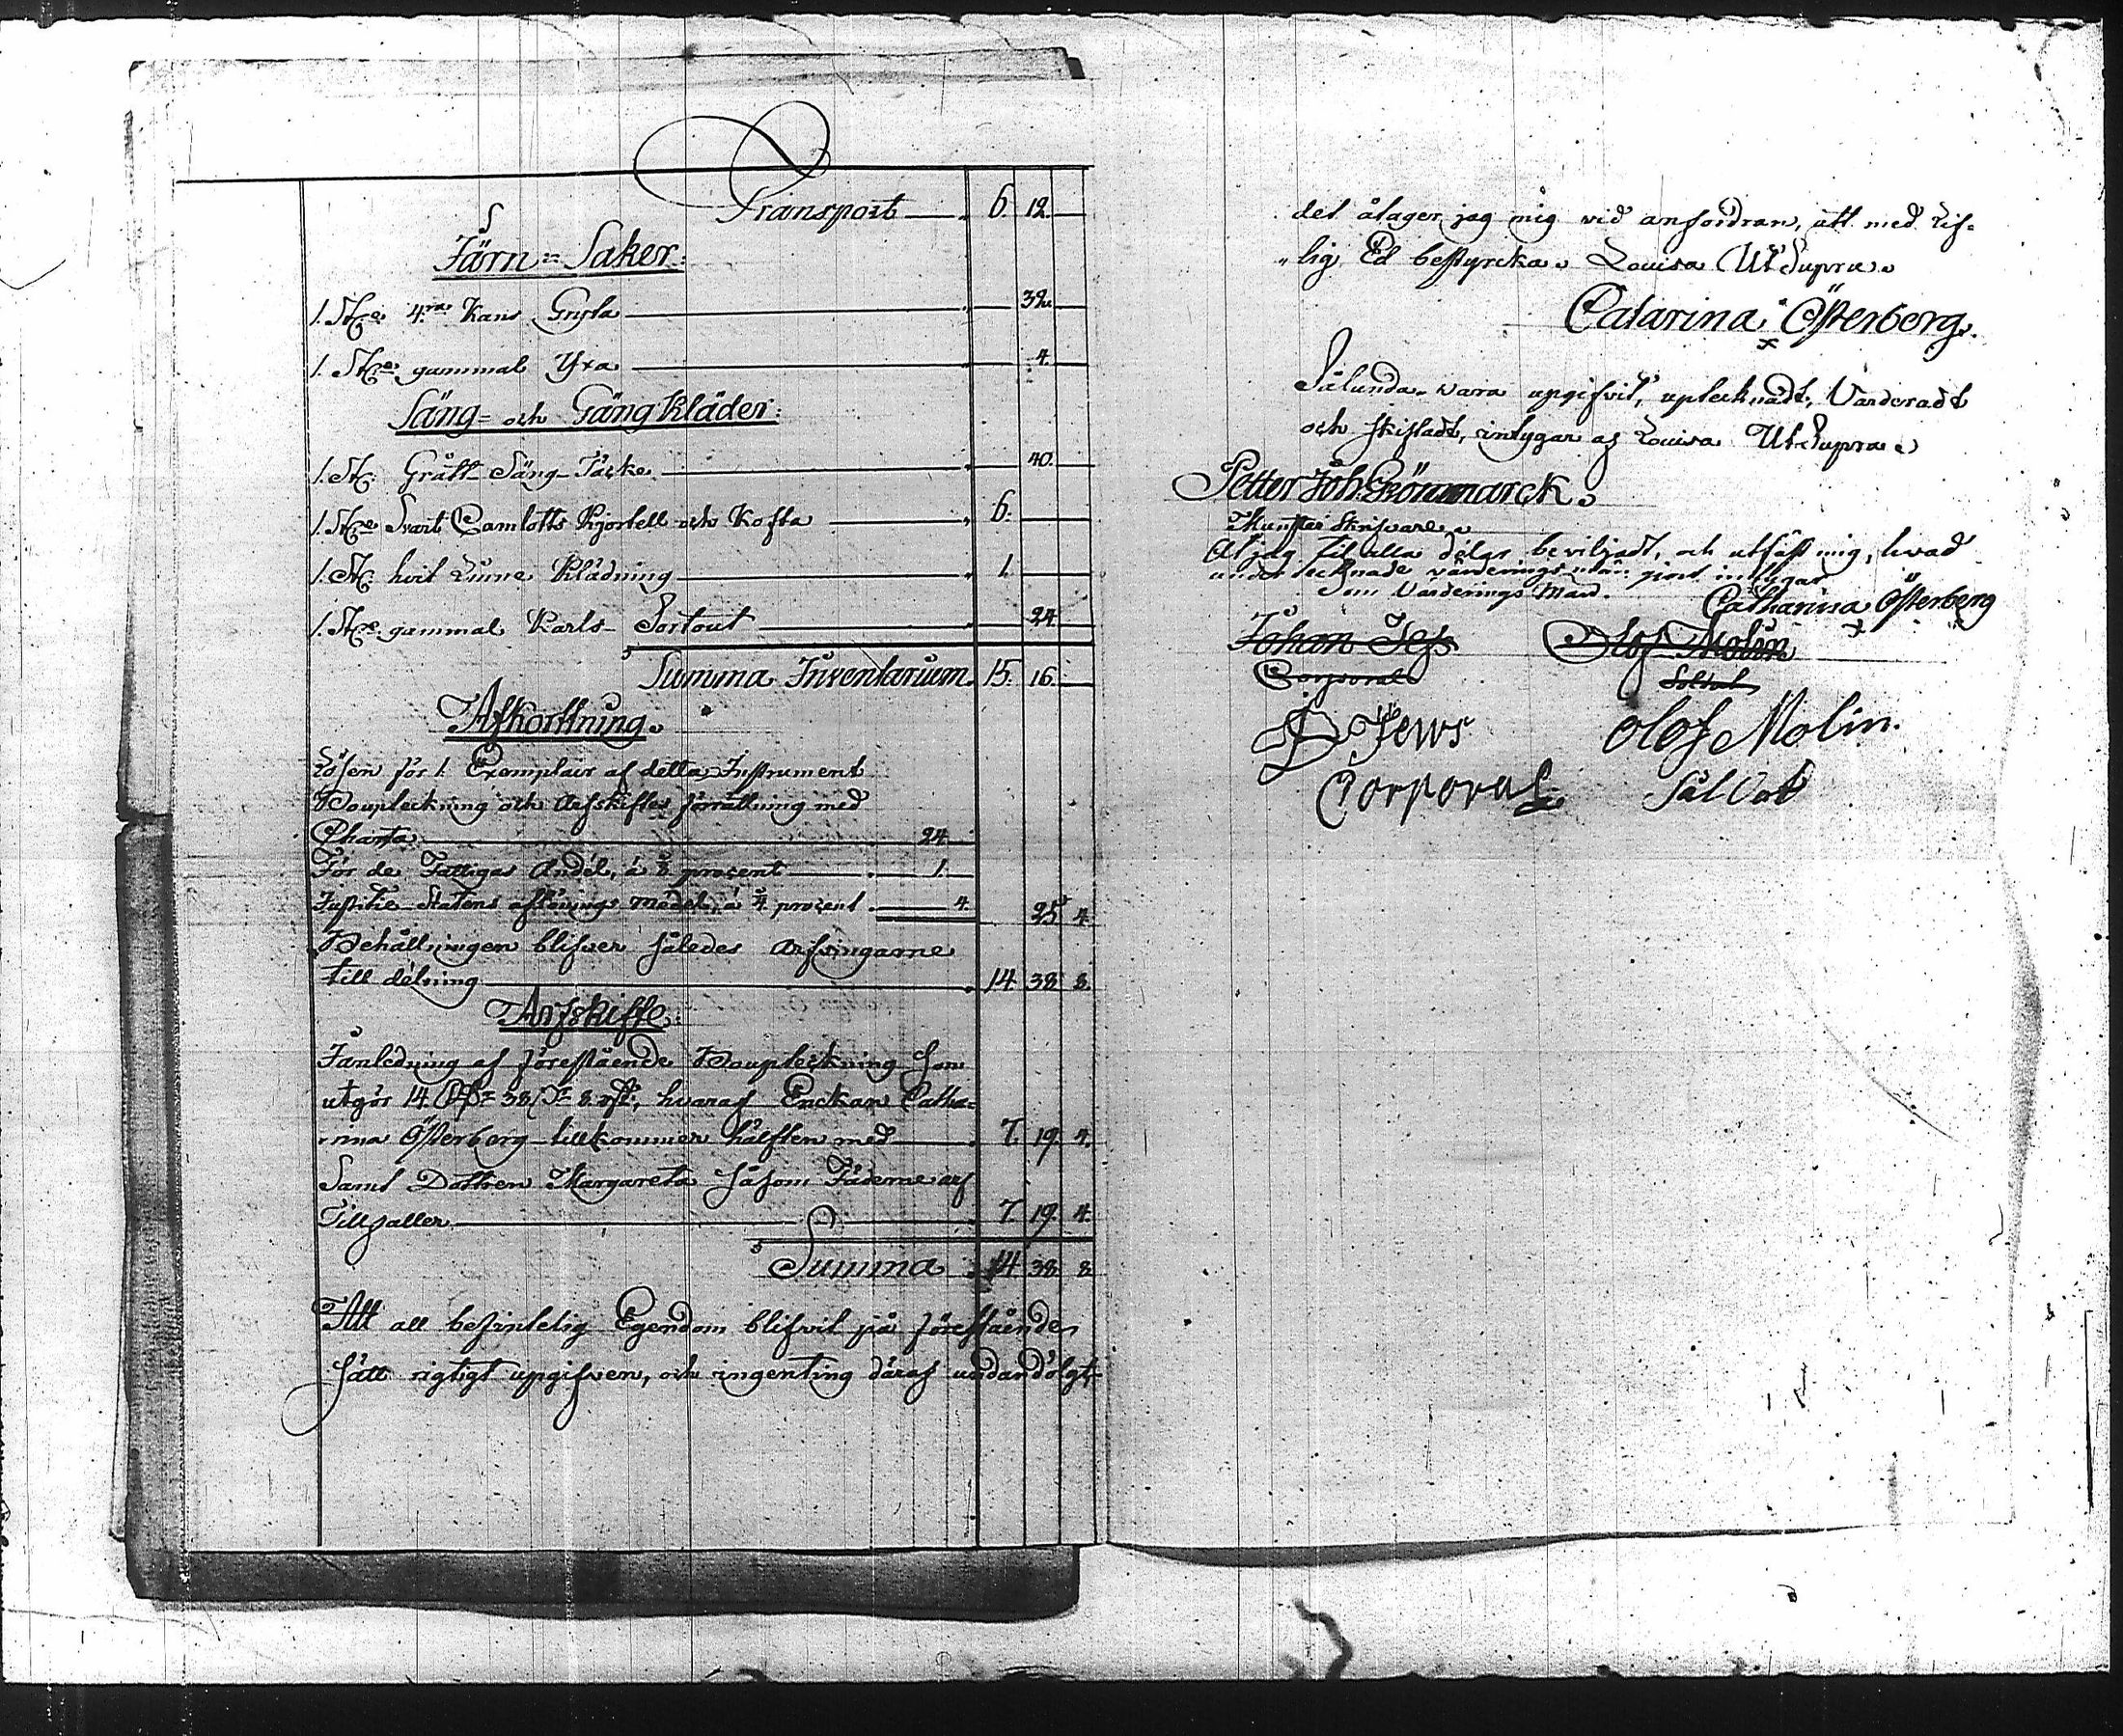 Transport 6. 12.
Järn-Saker:
1. St. 4ra Kans Gryta 32.
1. St. gammal Yxa 4.
Säng- och Gångkläder:
1. St. Grått Säng-Täcke 40.
1. St. Svart Camlotts Kjortell och Kofta 6.
1. St. hvit Linne Klädning 1.
1. St. gammal Karls Sortout 24
Summa Inventarium. 15. 16.
Afkortning.
Lösen för 1. Exemplair af detta Instrument
Bouptekning och Arfskiftes förrättning med
Charta 24
För de Fattigas Andel, á 1/8 procent 1.
Justitie Statens aflönings Medel, á 1/4 procent 4. 25 4.
Behållningen blifver således arfvingarne
till delning 14. 38 8.
Arfskifte:
I anledning af förestående Boupteckning som
utgör 14. 38 8. hvaraf Enckan Catha-
rina Österberg tillkommer hälften med 7. 19. 4.
Samt Dottren Margareta såsom Fäderne arf
Tillfaller 7. 19. 4.
Summa 14 38 8
Att all befintelig Egendom blifvit på förestående
sätt rigtigt upgifven, och ingenting däraf undandölgt
det åtager jag mig vid anfordran, att med Lif-
lig Ed bestyrcka. Lovisa Ut Supra.
Catarina Österberg.
x
Sålunda vara upgifvit, uptecknadt, Värderadt
och skiftadt, intygar af Lovisa Ut Supra
Petter Joh. Grönmarck.
Munster Skrifvare
At jag til alla delar beviljadt, och utfäst mig, hvad
undertecknade värderingsmän gjort intygar
Som Värderings Män. Catharina Österberg
x
Johan Jefs Olof Molin
Corporal Soldat
Jews Olof Molin.
Corporal Såldat